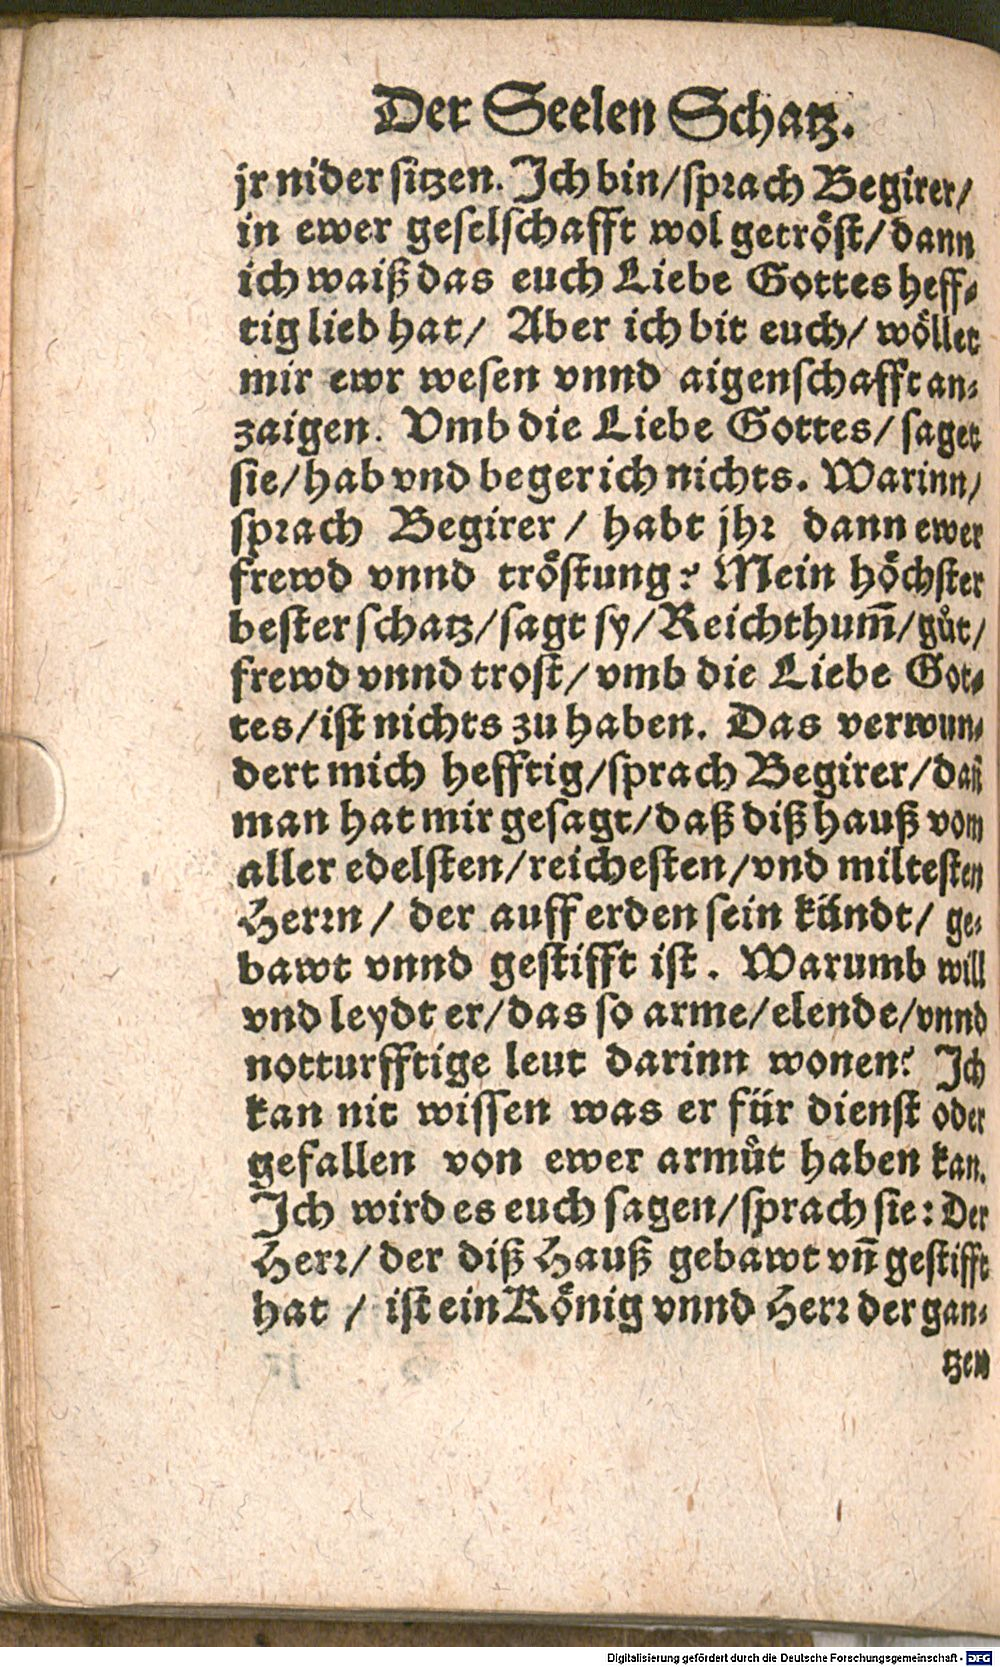 Der Seelen Schatz.
jr nider sitzen. Ich bin/sprach Begirer/
in ewer geselschafft wol getröst/dann
ich waiß das euch Liebe Gottes heff-
tig lieb hat/ Aber ich bit euch/ wöllet
mir ewr wesen vnnd aigenschafft an-
zaigen. Vmb die Liebe Gottes/ saget
sie/hab vnd beger ich nichts. Warinn/
sprach Begirer / habt jhr dann ewer
frewd vnnd tröstung? Mein höchster
bester schatz/sagt sy/Reichthum̃/gůt/
frewd vnnd trost/vmb die Liebe Got-
tes/ist nichts zu haben. Das verwun-
dert mich hefftig/sprach Begirer/dañ
man hat mir gesagt/daß diß hauß vom
aller edelsten/reichesten/vnd miltesten
Herrn/ der auff erden sein kündt/ ge-
bawt vnnd gestifft ist. Warumb will
vnd leydt er/das so arme/elende/vnnd
notturfftige leut darinn wonen? Ich
kan nit wissen was er für dienst oder
gefallen von ewer armůt haben kan.
Ich wird es euch sagen/sprach sie: Der
Herr/der diß Hauß gebawt vñ gestifft
hat / ist ein König vnnd Herr der gan-
tzen
Digitalisierung gefördert durch die Deutsche Forschungsgemeinschaft - DFG